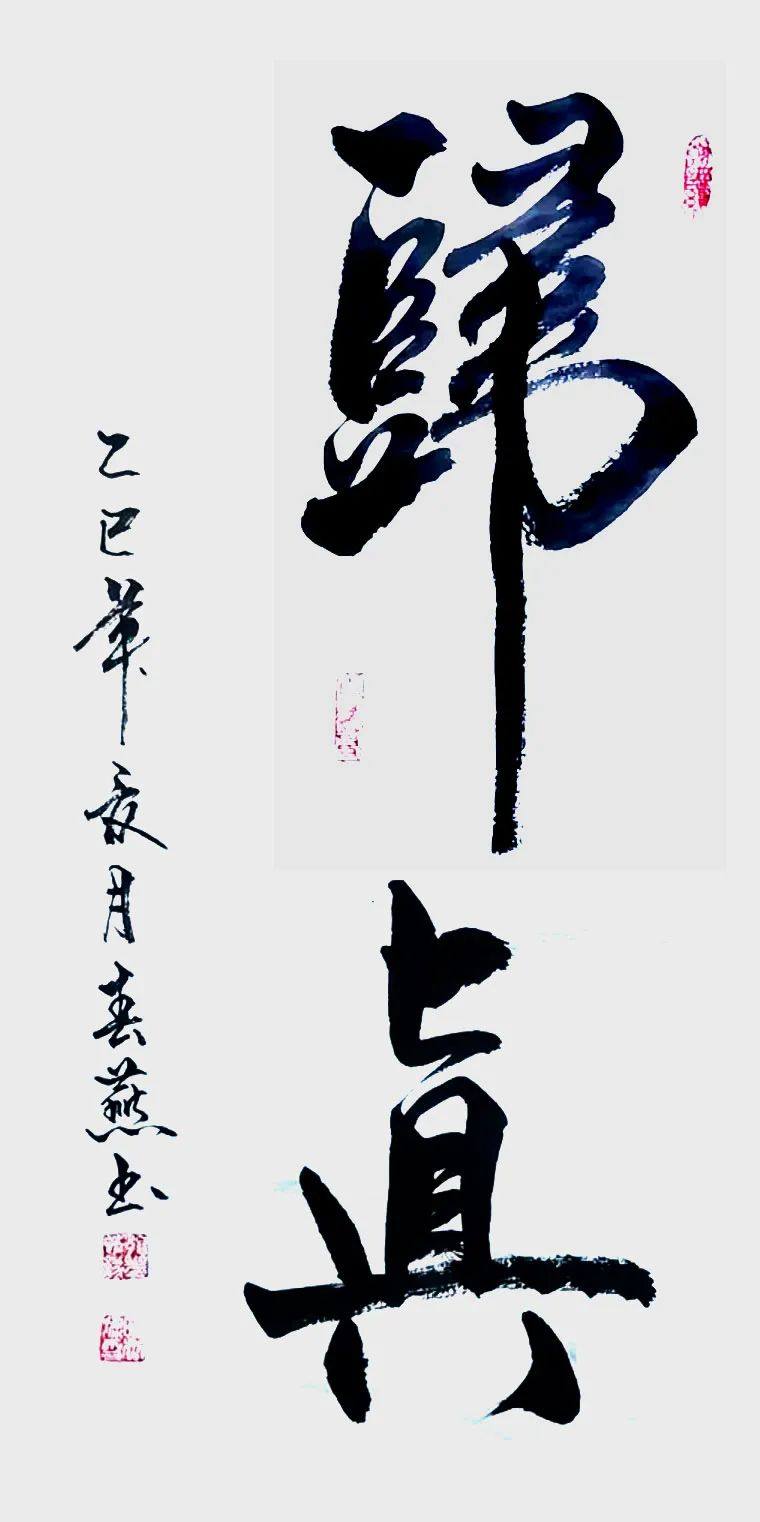 歸真
乙巳年夏月春燕书